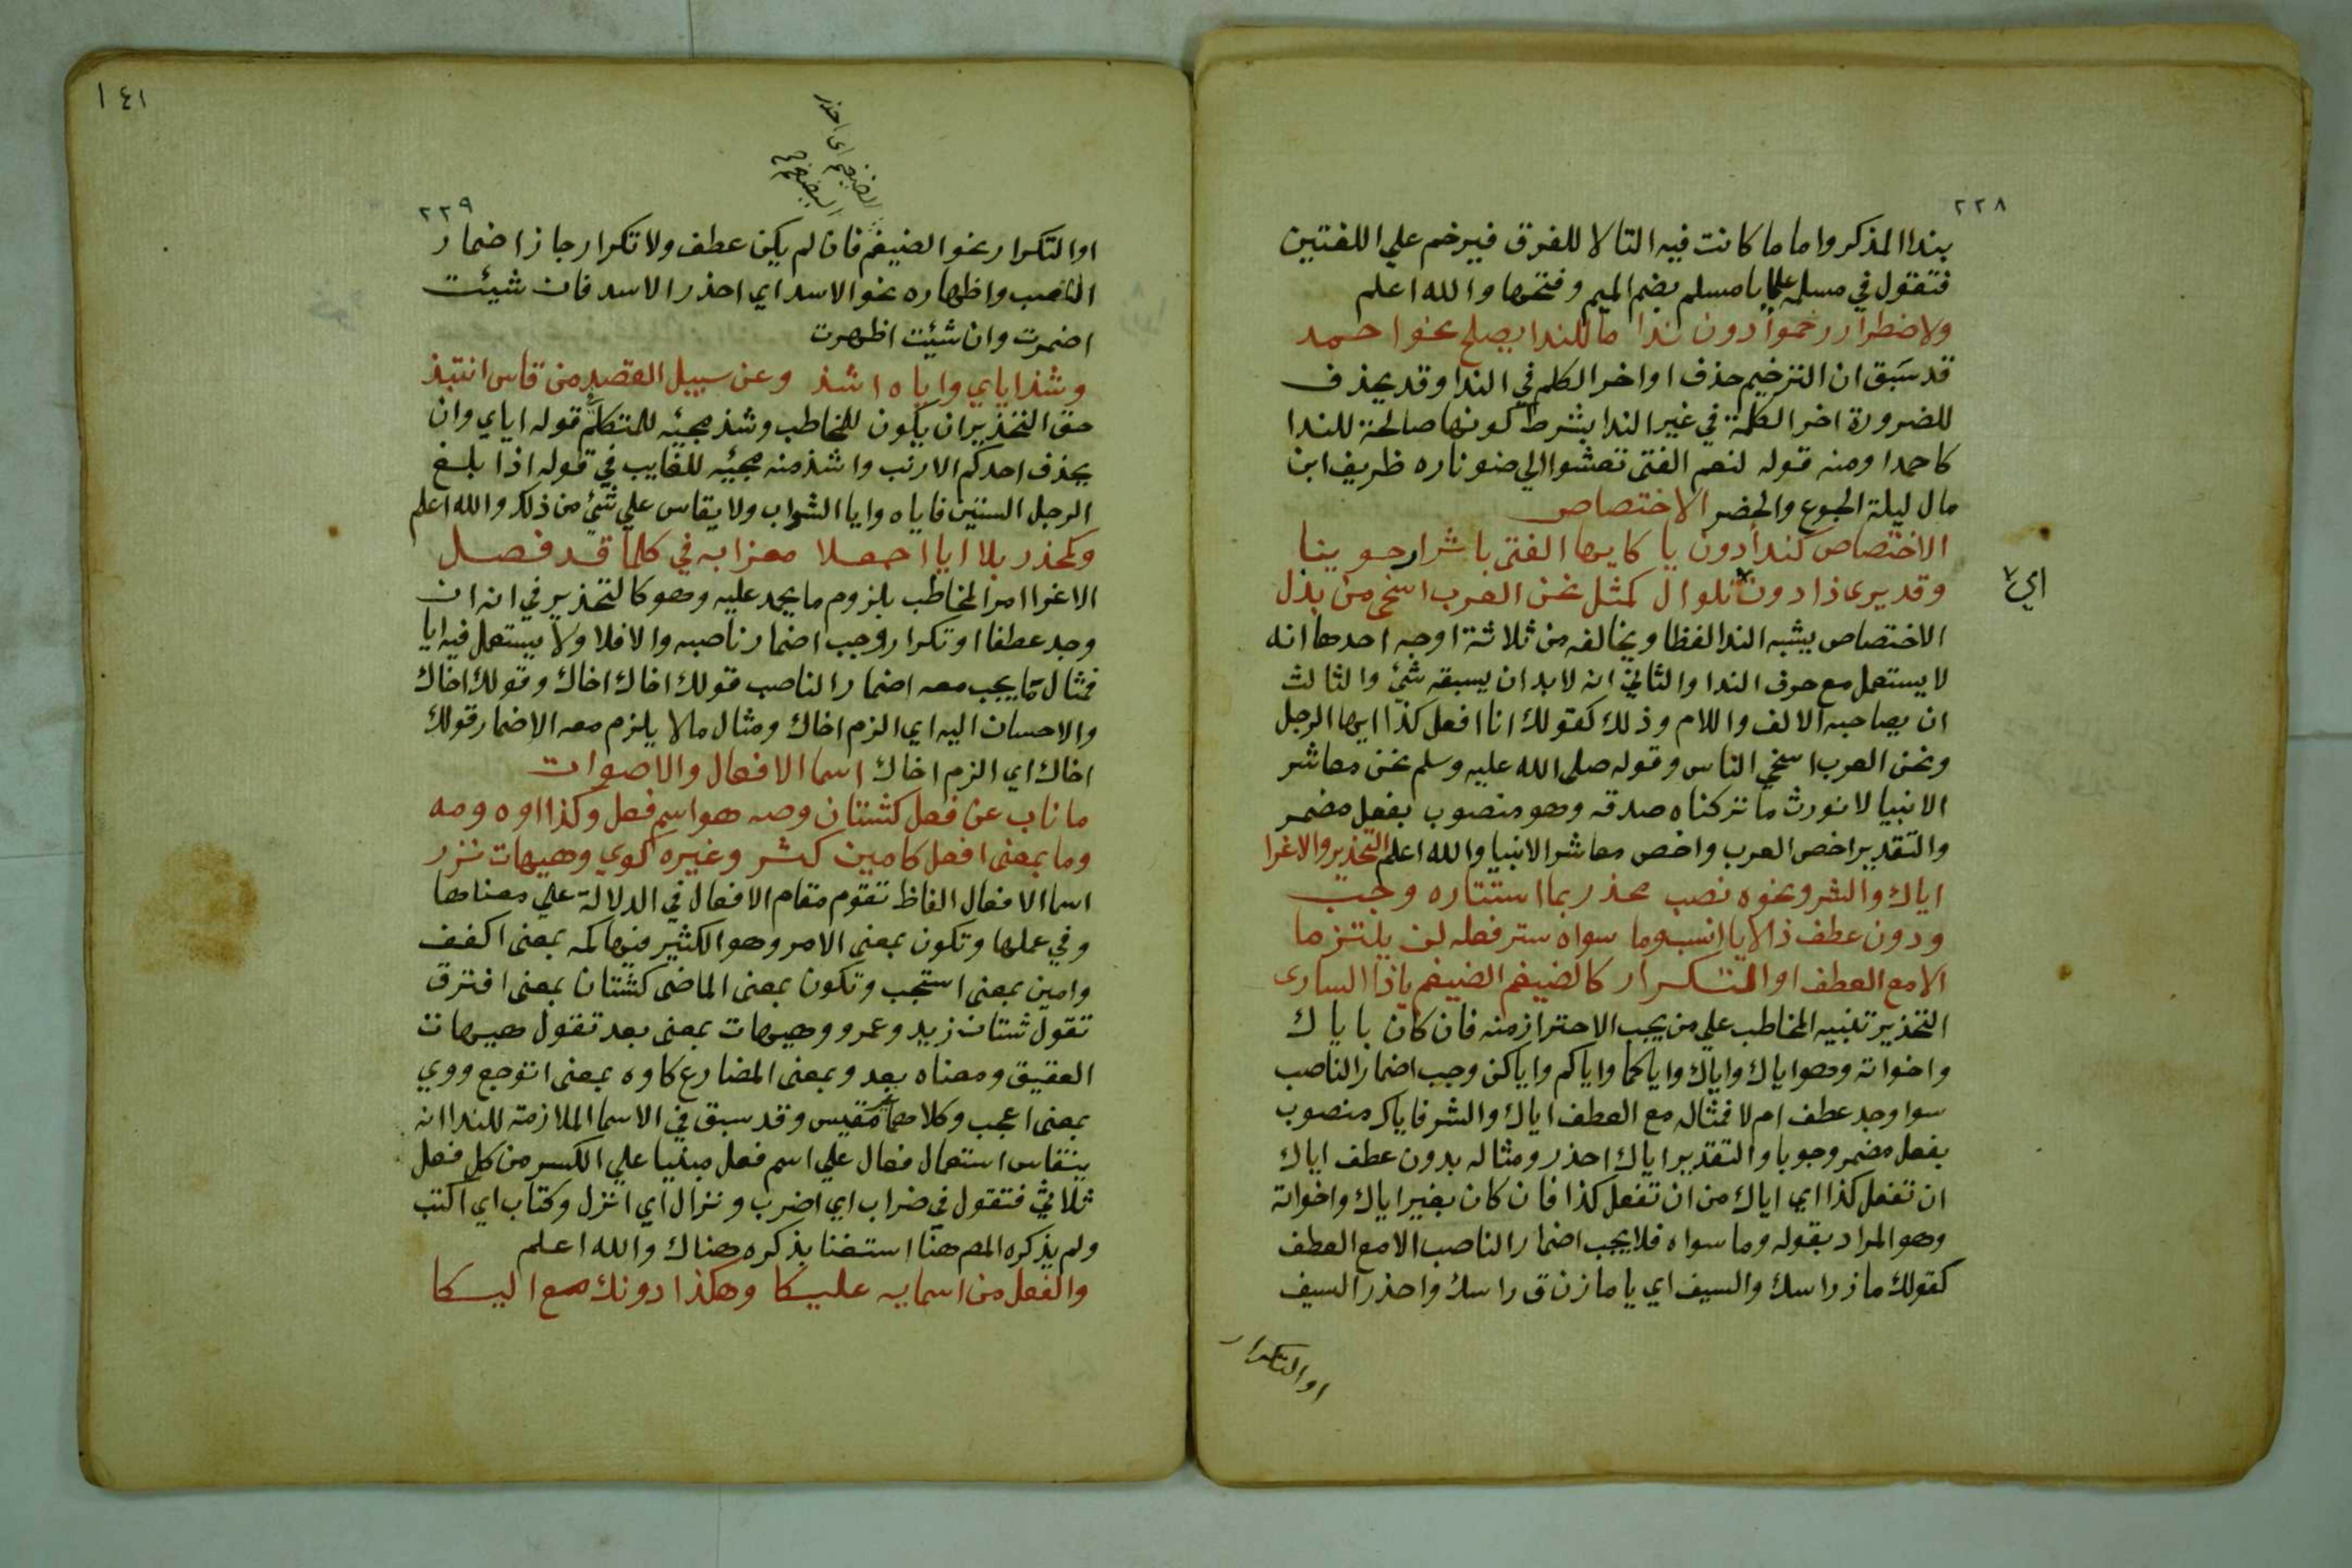 ٢٢٨
بندا المذكر واما ما كانت فيه التا لا للفرق فيرخم علي اللغتين
فتقول في مسلمة علما يا مسلم بضم الميم وفتحها والله اعلم
ولاضطرار رخموا دون ندا ما للندا يصلح نحو احمد
قد سَبق ان الترخيم حذف اواخر الكلم في الندا وقد يحذف
للضرورة اخر الكلمة في غير الندا بشرط كونها صالحة للندا
كاحمدا ومنه قوله لنعم الفتى تعشوا الي ضو ناره ظريف ابن
مال ليلة الجوع والخصر الاختصاص
الاختصاص كندا دون يا كايها الفتى باثر ارجوينا
وقد يرى ذا دون تلوال كمثل نحن العرب اسخى من بذل
اي
الاختصاص يشبه الندا لفظا ويخالفه من ثلاثة اوجه احدها انه
لا يستعمل مع حرف الندا والثاني انه لابد ان يسبقه شئ والثالث
ان يصاحبه الالف واللام وذلك كقولك انا افعل كذا ايها الرجل
ونحن العرب اسخي الناس وقوله صلى الله عليه وسلم نحن معاشر
الانبيا لا نورث ما تركناه صدقه وهو منصوب بفعل مضمر
والتقدير اخص العرب واخص معاشر الانبيا والله اعلم التحذير والاغرا
اياك والشر ونحوه نصب محذر بما استتاره وجب
ودون عطف ذا لايا انسب وما سواه ستر فعله لن يلتزما
الا مع العطف او التكرار كالضيغم الضيغم ياذا السارى
التحذير تنبيه المخاطب علي من يجب الاحتراز منه فان كان باياك
واخواته وهو اياك واياك واياكما واياكم واياكن وجب اضمار الناصب
سوا وجد عطف ام لا فمثاله مع العطف اياك والشر فاياك منصوب
بفعل مضمر وجوبا والتقدير اياك احذر ومثاله بدون عطف اياك
ان تفعل كذا اي اياك من ان تفعل كذا فان كان بغير اياك واخواته
وهو المراد بقوله وما سواه فلا يجب اضمار الناصب الا مع العطف
كقولك ماز راسك والسيف اي يا مازن ق راسك واحذر السيف
او التكرار
١٤١
الضيغم اي احذر
الضيغم
٢٢٩
او التكرار نحو الضيغم فان لم يكن عطف ولا تكرار جاز اضمار
الناصب واظهاره نحو الاسد اي احذر الاسد فان شيئت
اضمرت وان شئيت اظهرت
وشذ اياي واياه اشذ وعن سبيل القصد من قاس انتبذ
حق التحذير ان يكون للمخاطب وشذ مجيئه للمتكلم قوله اياي وان
يحذف احدكم الارنب واشذ منه مجيئه للغايب في قوله اذا بلغ
الرجل الستين فاياه وايا الشواب ولا يقاس علي شئ من ذلك والله اعلم
وكمحذر بلا ايا اجعلا مغزابه في كلما قد فصل
الاغرا امر المخاطب بلزوم ما يحمد عليه وهو كالتحذير في انه ان
وجد عطفا او تكرار وجب اضمار ناصبه والا فلا ولا يستعمل فيه ايا
فمثال ما يجب معه اضمار الناصب قولك اخاك اخاك وقولك اخاك
والاحسان اليه اي الزم اخاك ومثال مالا يلزم معه الاضمار قولك
اخاك اي الزم اخاك اسما الافعال والاصوات
ما ناب عن فعل كشتان وصه هو اسم فعل وكذا اوه ومه
وما بمعنى افعل كامين كثر وغيره كوي وهيهات نزر
اسما الافعال الفاظ تقوم مقام الافعال في الدلالة علي معناها
وفي عملها وتكون بمعنى الامر وهو الكثير فيها كمه بمعنى اكفف
وامين بمعنى استجب وتكون بمعنى الماضى كشتان بمعنى افترق
تقول شتان زيد وعمرو وهيهات بمعنى بعد تقول هيهات
العقيق ومعناه بعد وبمعنى المضارع كاوه بمعنى اتوجع ووي
بمعنى اعجب وكلاهما غير مقيس وقد سبق في الاسما الملازمة للندا انه
ينقاس استعمال فعال علي اسم فعل مبنيا علي الكسر من كل فعل
ثلاثي فتقول في ضراب اي اضرب ونزال اي انزل وكتاب اي اكتب
ولم يذكره المصـ هنا استغنا بذكره هناك والله اعلم
والفعل من اسمايه عليكا وهكذا دونك مع اليكا